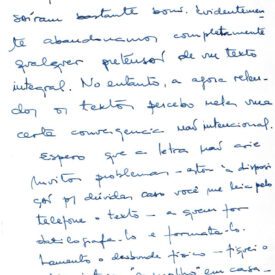 saíram bastante bons. Evidentemen-
te abandonamos completamente
qualquer pretensão de um texto
integral. No entanto, a agora relen-
do os textos percebo neles uma
certa convergencia não intencional.
Espero que a letra não crie
muitos problemas - estou à disposi-
ção p/ dúvidas caso você me leia pelo
telefone o texto - a quem for
datilografa-lo e formata-lo.